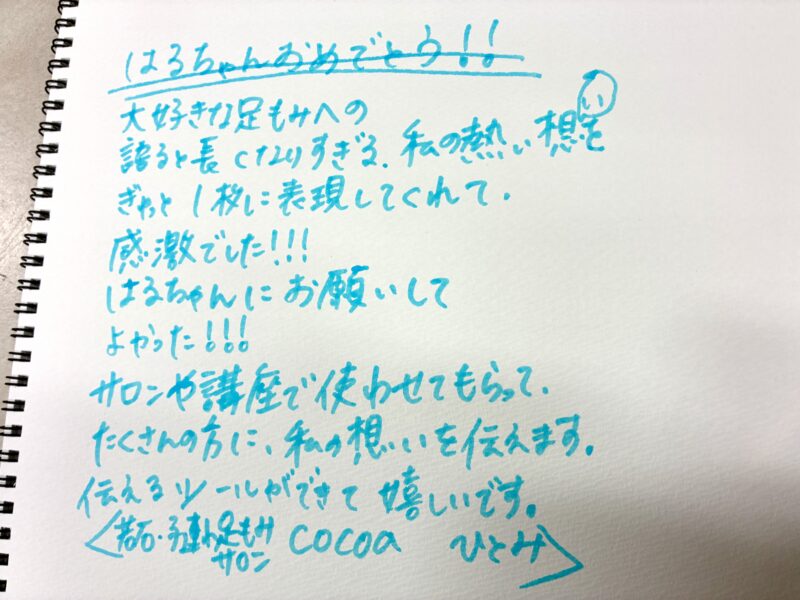 はるちゃんおめでとう!!
大好きな足もみへの
語ると長くなりすぎる、私の熱い想いを
ぎゅっと1枚に表現してくれて、
感激でした!!!
はるちゃんにお願いして
よかった!!!
サロンや講座で使わせてもらって、
たくさんの方に、私の想いを伝えます。
伝えるツールができて嬉しいです。
<若石・子連れ足もみサロン cocoa ひとみ>